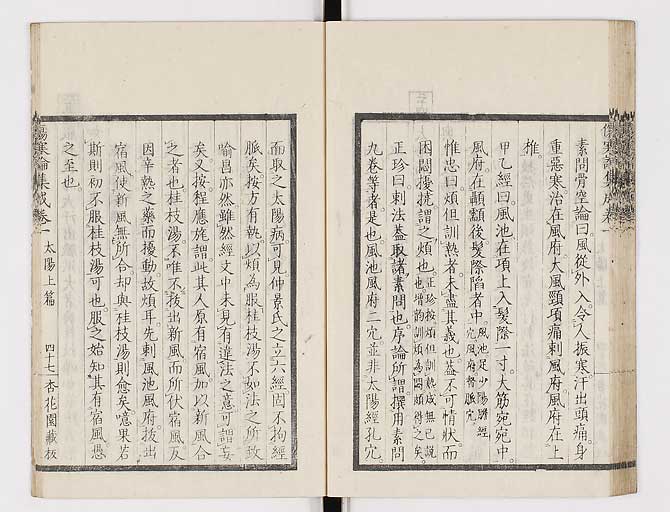 素問骨空論曰。風從外入。令人振寒汗出頭痛。身
重惡寒。治在風府。大風頸項痛。刺風府。風府在上
椎。
甲乙經曰。風池在項上入髮際一寸。大筋宛宛中。
風府。在顳顬後髮際陷者中。風池足少陽蹻經穴。風府督脈穴。
惟忠曰。煩但訓熱者。未盡其義也。蓋不可情狀而
困悶擾撓。謂之煩也。正珍按煩但訓熱。成無已說也。增韵訓煩為悶煩。得之矣。
正珍曰。刺法蓋取諸素問也。序論所謂撰用素問
九卷等者是也。風池風府二穴。並非太陽經孔穴。
而取之太陽病。可見仲景氏之立六經。固不拘經
脈矣。按方有執以煩為服桂枝湯不如法之所致。
喻昌亦然。雖然經文中未見有違法之意。可謂妄
矣。又按程應旄謂。此其人原有宿風。加以新風合
之者也。桂枝湯不唯不拔出新風。而所伏宿風反
因辛熱之藥而擾動。故煩耳。先刺風池風府。拔出
宿風。使新風無所合。却與桂枝湯則愈矣。噫果若
斯。則初不服桂枝湯可也。服之始知其有宿風。愚
之至也。
傷寒論集成卷一 太陽上篇 四十七 杏花園藏板